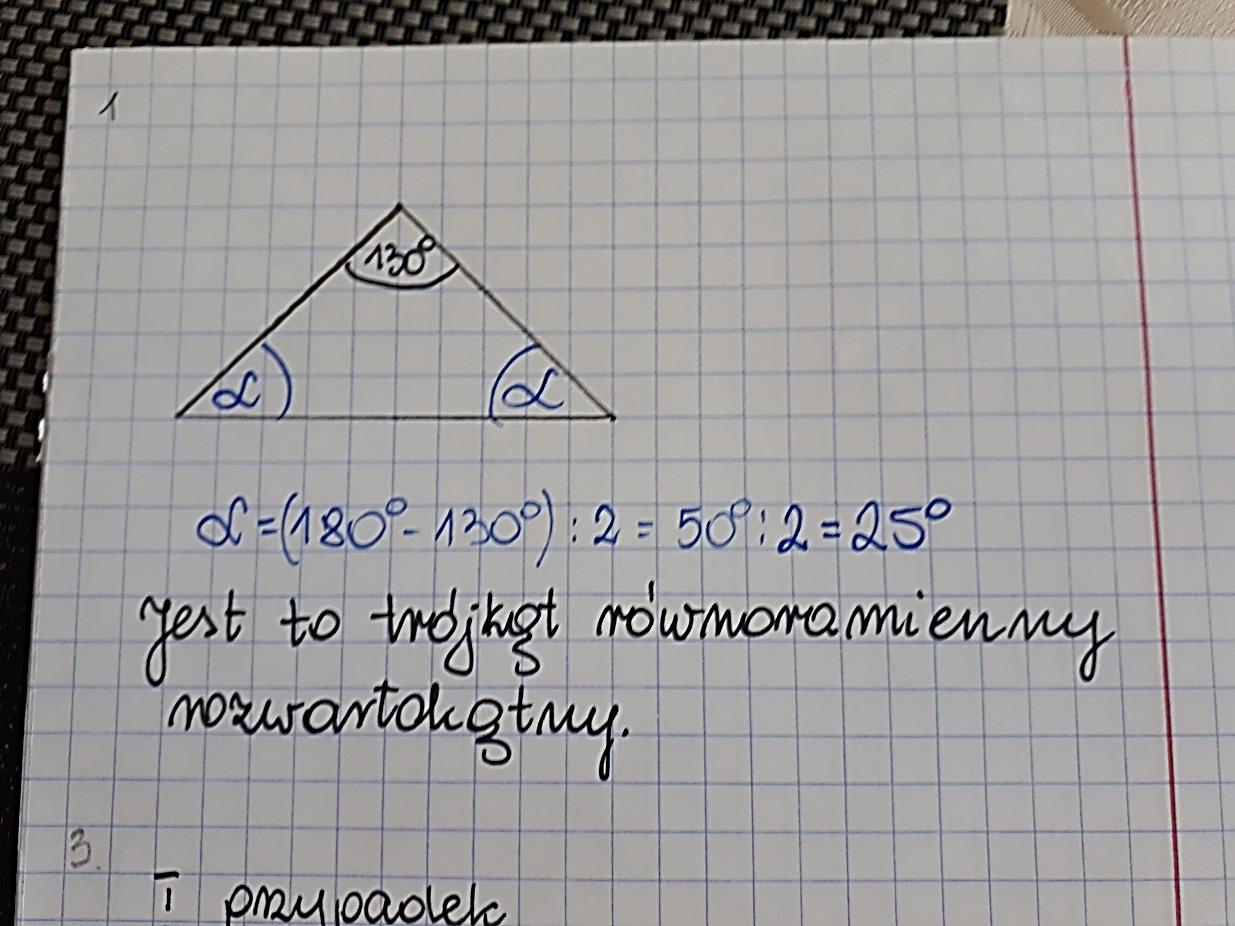 1
130°
α α
α = (180° - 130°) : 2 = 50° : 2 = 25°
Jest to trójkąt równoramienny
rozwartokątny.
3.
I przypadek